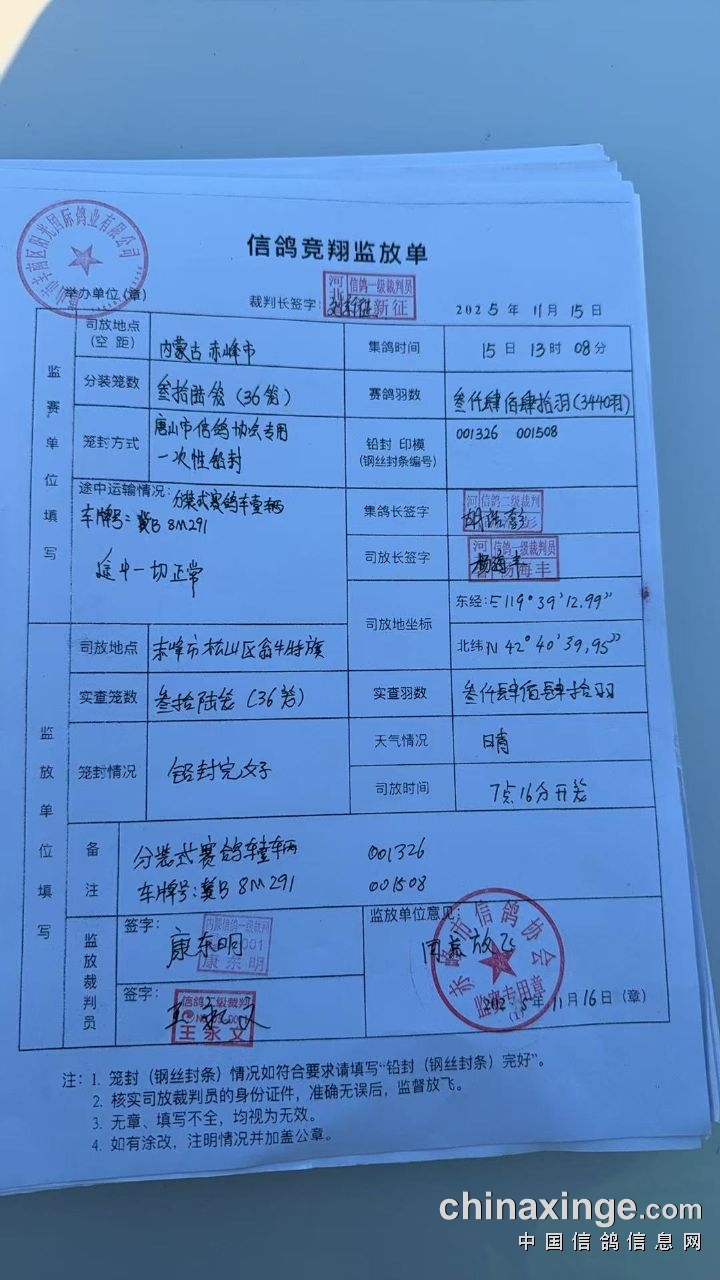 信鸽竞翔监放单
市丰南区阳光国际鸽业有限公司
举办单位(章)
裁判长签字:
河北 信鸽一级裁判员
新征
2025年11月15日
监赛单位填写
司放地点(空距)
内蒙古赤峰市
集鸽时间
15日13时08分
分装笼数
叁拾陆笼(36笼)
赛鸽羽数
叁仟肆佰肆拾羽(3440羽)
笼封方式
唐山市信鸽协会专用
一次性铅封
铅封 印模
(钢丝封条编号)
001326 001508
途中运输情况:分装式赛鸽车辆
车牌号:冀B 8M291
途中一切正常
集鸽长签字
河 信鸽二级裁判
司放长签字
河 信鸽一级裁判员
杨海丰
司放地坐标
东经:E119°39'12.99"
北纬N 42°40'39.95"
监放单位填写
司放地点
赤峰市松山区翁牛特旗
实查笼数
叁拾陆笼(36笼)
实查羽数
叁仟肆佰肆拾羽
笼封情况
铅封完好
天气情况
晴
司放时间
7点16分开笼
备注
分装式赛鸽车辆 001326
车牌号:冀B 8M291 001508
监放裁判员
签字:
康东明
内蒙信鸽一级裁判
001
康东明
签字:
信鸽二级裁判
王永文
监放单位意见:
同意放飞
赤峰市信鸽协会
监赛专用章
(1)
2025年11月16日(章)
注:1. 笼封(钢丝封条)情况如符合要求请填写“铅封(钢丝封条)完好”。
2. 核实司放裁判员的身份证件,准确无误后,监督放飞。
3. 无章、填写不全,均视为无效。
4. 如有涂改,注明情况并加盖公章。
chinaxinge.com
中国信鸽信息网